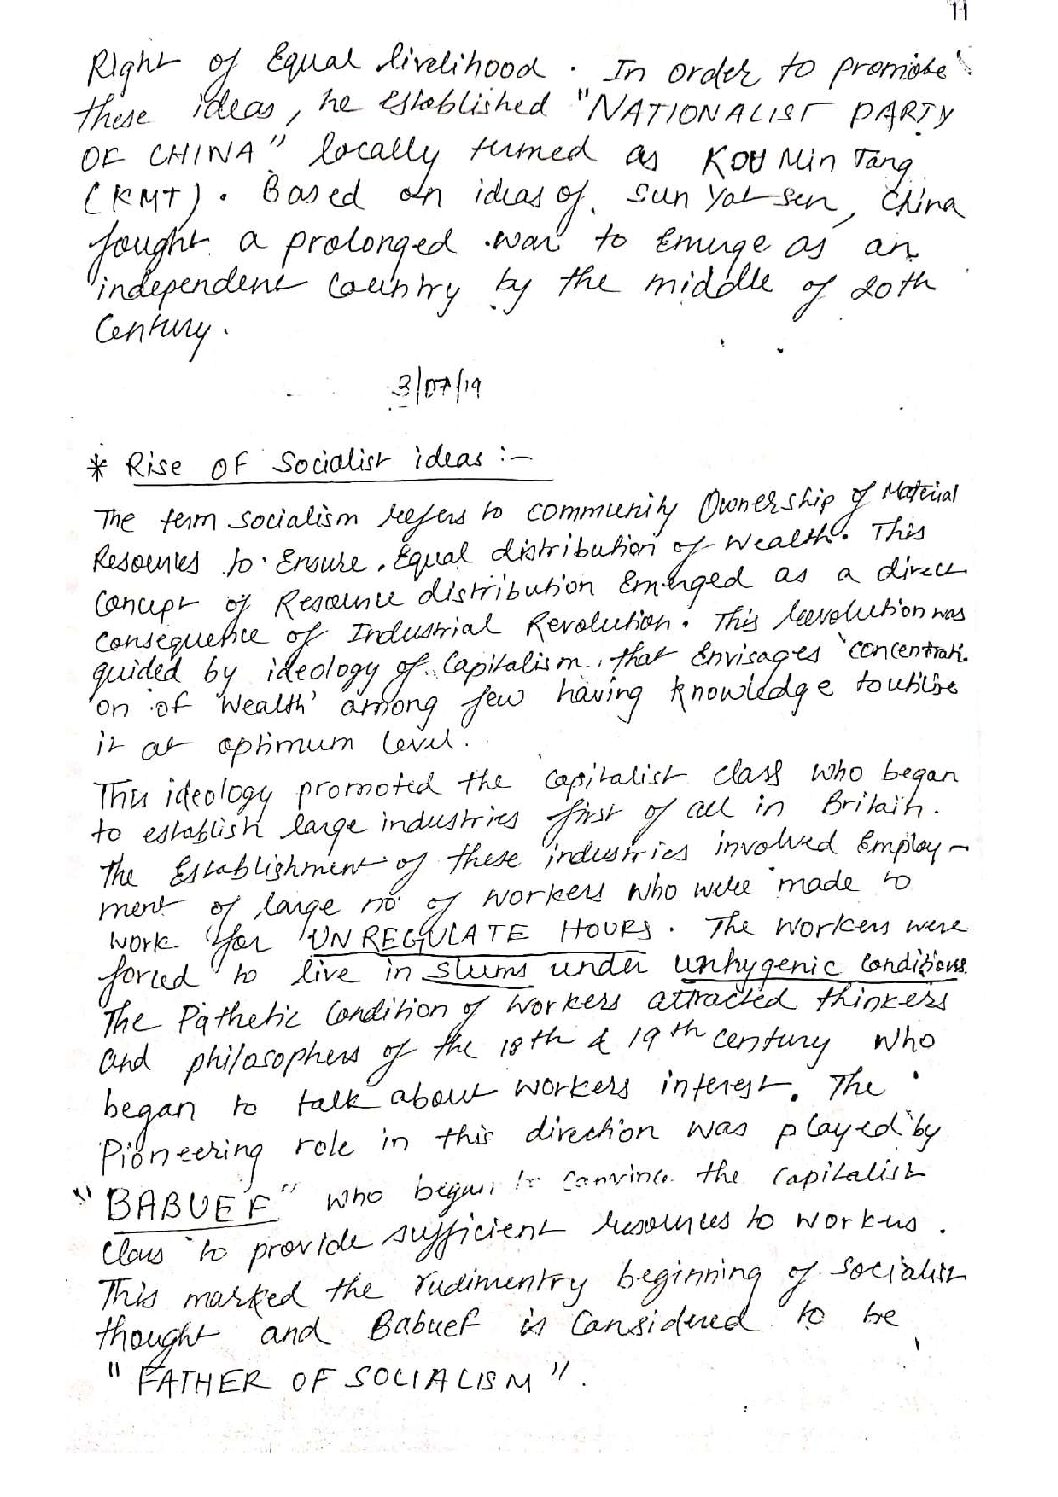 11
Right of Equal livelihood. In order to promote
these ideas, he established "NATIONALIST PARTY
OF CHINA" locally termed as KOU Min Tang
(KMT). Based on ideas of Sun Yat sen, China
fought a prolonged war to Emerge as an
independent Country by the middle of 20th
Century.
3/07/19
* Rise OF Socialist ideas :-
The term socialism refers to community Ownership of Material
Resources to Ensure Equal distribution of wealth. This
Concept of Resource distribution Emerged as a direct
consequence of Industrial Revolution. This Revolution was
guided by ideology of Capitalism that Envisages 'concentrati-
on of Wealth' among few having knowledge to utilise
it at optimum level.
This ideology promoted the capitalist class who began
to establish large industries first of all in Britain.
The Establishment of these industries involved Employ-
ment of large no of workers who were made to
work for UNREGULATE HOURS. The Workers were
forced to live in slums under unhygenic Conditions
The Pathetic Condition of Workers attracted thinkers
and philosophers of the 18th & 19th century who
began to talk about workers interest. The
Pioneering role in this direction was played by
"BABUEF" who began to convince the capitalist
Class to provide sufficient resources to workers.
This marked the rudimentry beginning of socialist
thought and Babuef is Considered to be
"FATHER OF SOCIALISM".